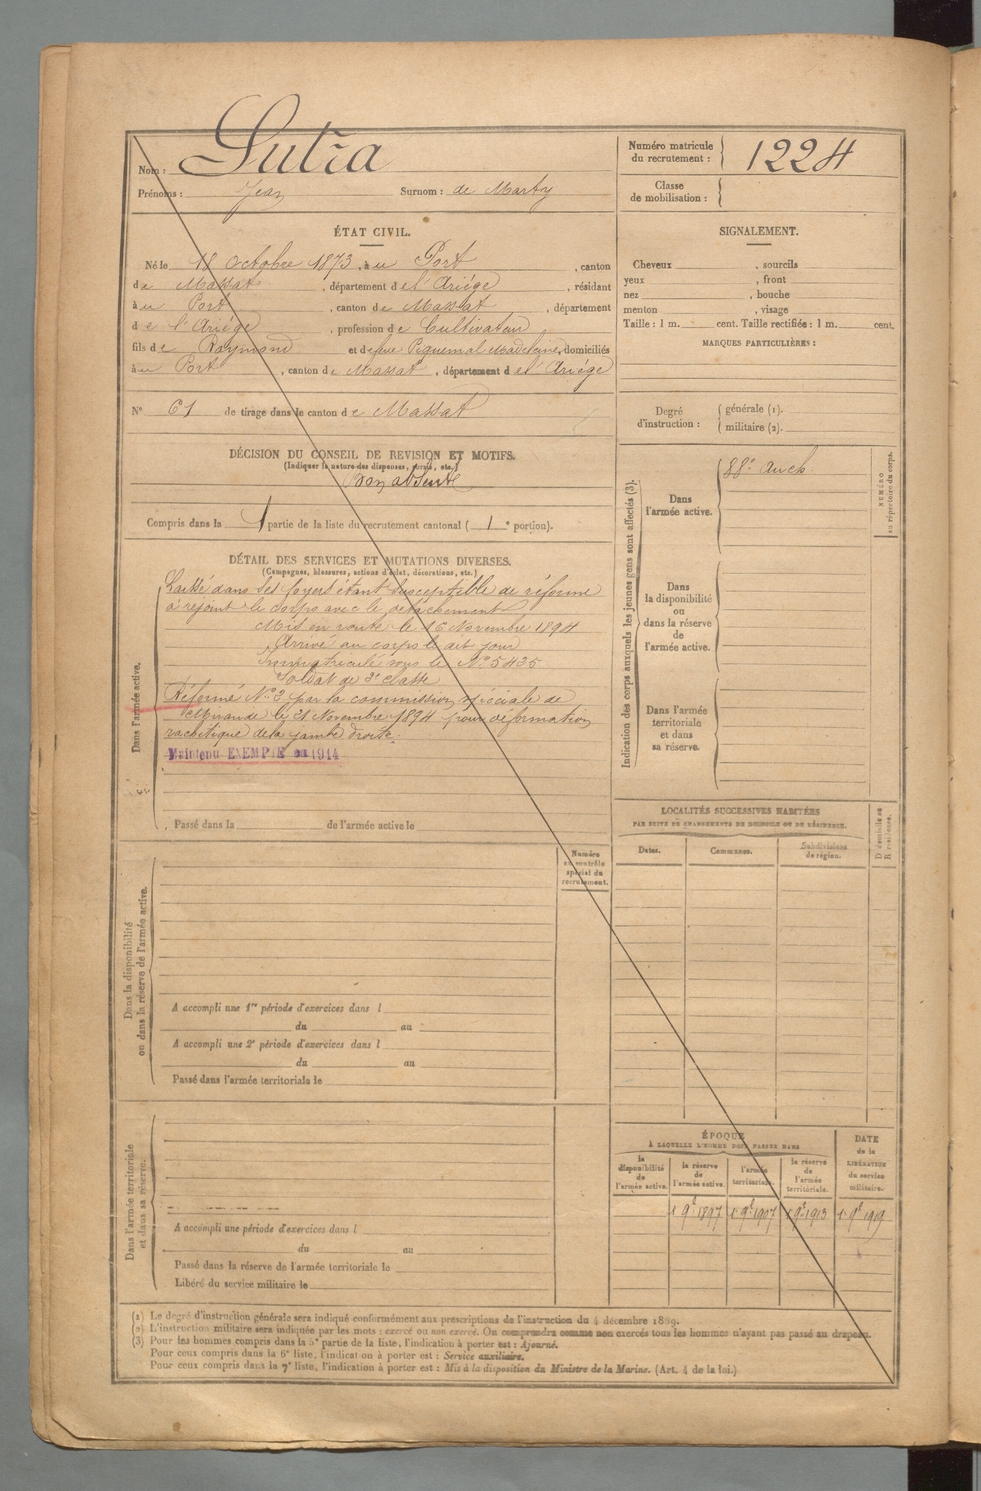 Nom : Sutra
Prénoms : Jean Surnom : de Marty
Numéro matricule du recrutement : 1224
Classe de mobilisation :
ÉTAT CIVIL.
Né le 18 octobre 1873, à u Port, canton
d e Massat, département d e l'Ariège, résidant
à u Port, canton d e Massat, département
d e l'Ariège, profession d e Cultivateur
fils d e Raymond et d e feue Piquemal Madeleine, domiciliés
à u Port, canton d e Massat, département d e l'Ariège
N° 61 de tirage dans le canton d e Massat
DÉCISION DU CONSEIL DE REVISION ET MOTIFS.
(Indiquer la nature des dispenses, sursis, etc.)
Bon absent
Compris dans la 1 partie de la liste du recrutement cantonal ( 1 e portion).
DÉTAIL DES SERVICES ET MUTATIONS DIVERSES.
(Campagnes, blessures, actions d'éclat, décorations, etc.)
Dans l'armée active.
Laissé dans ses foyers étant susceptible de réforme
a rejoint le corps avec le détachement
Mis en route le 16 Novembre 1894
Arrivé au corps le dit jour
Immatriculé sous le N° 5435
Soldat de 2e classe
Réformé N° 2 par la commission spéciale de
Mirande le 21 Novembre 1894 pour déformation
rachitique de la jambe droite.
Maintenu EXEMPTÉ en 1914
Passé dans la de l'armée active le
Dans la disponibilité
ou dans la réserve de l'armée active.
Numéro
au contrôle
spécial du
recrutement.
A accompli une 1re période d'exercices dans l
du au
A accompli une 2e période d'exercices dans l
du au
Passé dans l'armée territoriale le
Dans l'armée territoriale
et dans sa réserve.
A accompli une période d'exercices dans l
du au
Passé dans la réserve de l'armée territoriale le
Libéré du service militaire le
SIGNALEMENT.
Cheveux , sourcils
yeux , front
nez , bouche
menton , visage
Taille : 1 m. cent. Taille rectifiée : 1 m. cent.
MARQUES PARTICULIÈRES :
Degré d'instruction : générale (1).
militaire (2).
Indication des corps auxquels les jeunes gens sont affectés (3).
Dans
l'armée active.
88e Auch
NUMÉRO
au répertoire du corps.
Dans
la disponibilité
ou
dans la réserve
de
l'armée active.
Dans l'armée
territoriale
et dans
sa réserve.
LOCALITÉS SUCCESSIVES HABITÉES
PAR SUITE DE CHANGEMENTS DE DOMICILE OU DE RÉSIDENCE.
Dates. Communes. Subdivisions de région. D domicile ou R résidence.
ÉPOQUE
À LAQUELLE L'HOMME DOIT PASSER DANS
la disponibilité de l'armée active. la réserve de l'armée active. l'armée territoriale. la réserve de l'armée territoriale. DATE de la LIBÉRATION du service militaire.
1r 9e 1897 1r 9e 1907 1r 9e 1913 1r 9e 1919
(1) Le degré d'instruction générale sera indiqué conformément aux prescriptions de l'instruction du 4 décembre 1889.
(2) L'instruction militaire sera indiquée par les mots : exercé ou non exercé. On comprendra comme non exercés tous les hommes n'ayant pas passé au drapeau.
(3) Pour les hommes compris dans la 5e partie de la liste, l'indication à porter est : Ajourné.
Pour ceux compris dans la 6e liste, l'indication à porter est : Service auxiliaire.
Pour ceux compris dans la 7e liste, l'indication à porter est : Mis à la disposition du Ministre de la Marine. (Art. 4 de la loi.)